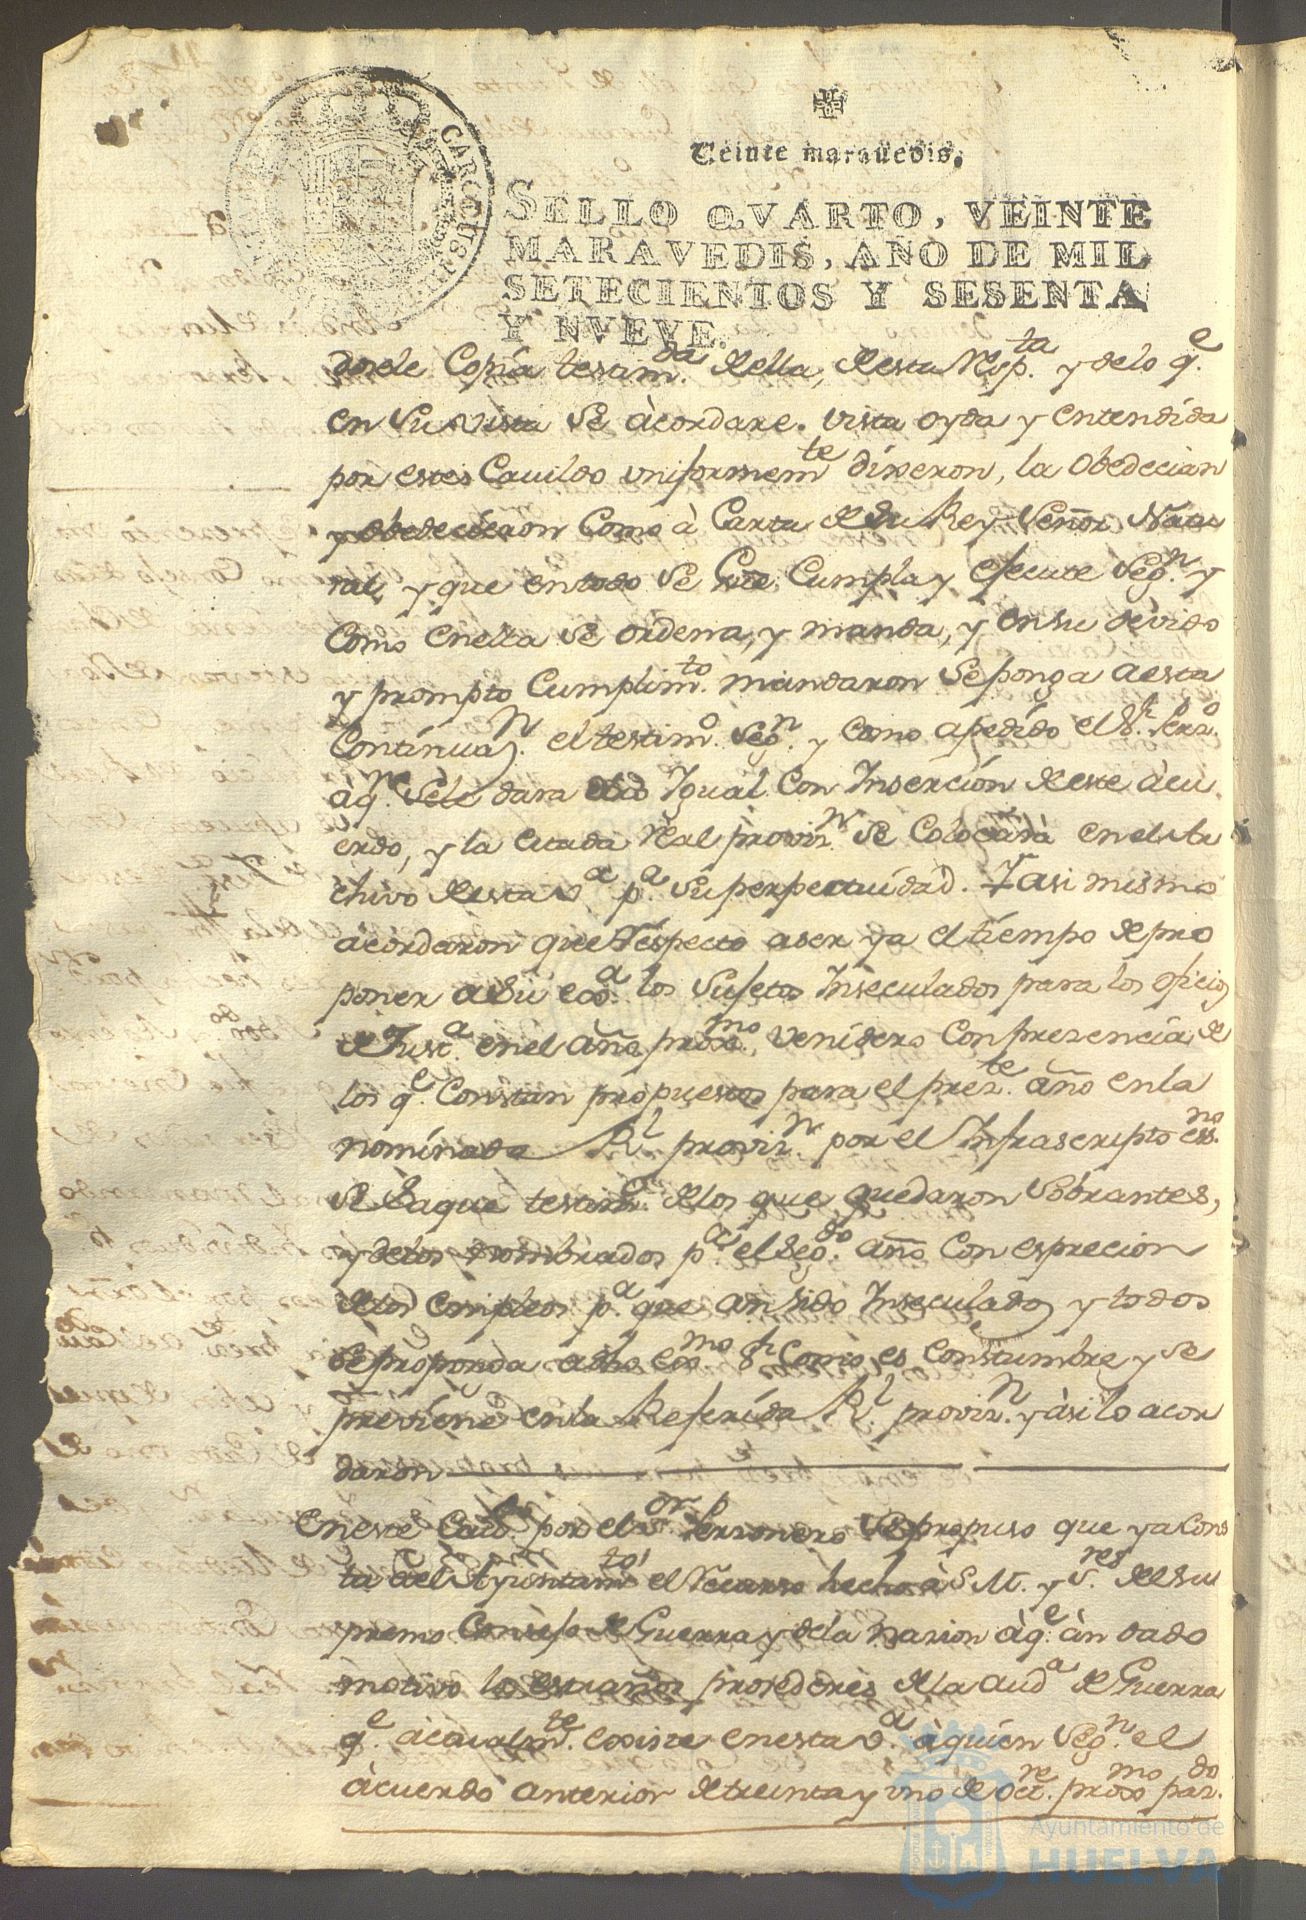 CAROLUS III
Veinte maravedis.
SELLO QVARTO, VEINTE
MARAVEDIS, AÑO DE MIL
SETECIENTOS Y SESENTA
Y NVEVE.
dosele Copia testim.da della, desta Resp.ta y delo q.e
en su vista se àcordare. vista oyda y entendida
por estes Cavildo uniformem.te dixeron, la obedecian
y obedecieron Como à Carta de su Rey y Señor Natu
ral, y que entodo se Gue Cumpla y Esecute seg.n y
Como enella se ordena, y manda, y ensu dèvido
y prompto Cumplim.to mandaron seponga aesta
Continuaz.n el testim.o seg.n y como apedido el S.r Perz.o
àq.n sele dara otro Igual Con Insercion deeste àcu
erdo, y la citada Real provis.n se Colocarà enel Ar
chivo desta v.a p.a su perpetuidad. Y asi mismo
acordaron que respecto aser ya el tiempo de pro
poner asu exa.a los sujetos Inseculados para los oficios
de Just.a enel año, prox.mo venidero Conprezencia, de
los q.e Constan propuestos para el prez.te año enla
nominada R.l provis.n por el Infrascripto ess.no
se saque testim.o delos que, quedaron sobrantes,
y delos nombrados p.a el seg.do año Con esprecion
delos empleos p.a que an sido Inseculados y todos
se proponga adho exc.mo S.r Como es Constumbre y se
previene enla Referida R.l provis.n y àsi lo acor
daron
Eneste Cav.do por el S.or Perzonero se propuso que ya Cons
ta del Ayuntam.to el recurso hecho à S.M. y S.res delsu
premo Consejo de Guerra y dela marina àq.e àn dado
motivo lo estraños prosederes dela aud.a de Guerra
q.e àctualm.te existe enesta v.a àquien seg.n el
àcuerdo anterior detreinta y uno de oct.re prox.mo pas.do
Ayuntamiento de
HUELVA